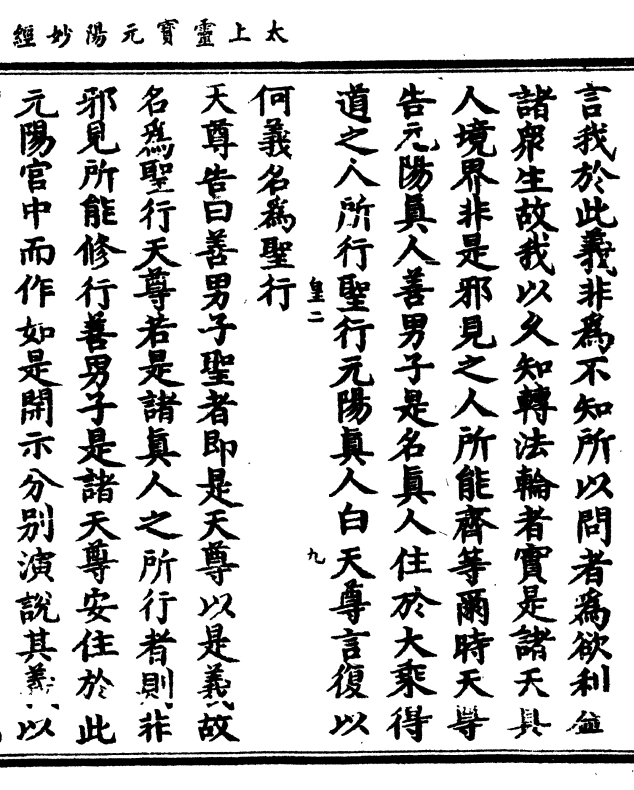 太上靈寶元陽妙經
言我於此義非為不知所以問者為欲利益
諸衆生故我以久知轉法輪者實是諸天真
人境界非是邪見之人所能齊等爾時天尊
告元陽真人善男子是名真人住於大乘得
道之人所行聖行元陽真人白天尊言復以
皇二
九
何義名為聖行
天尊告曰善男子聖者即是天尊以是義故
名為聖行天尊若是諸真人之所行者則非
邪見所能修行善男子是諸天尊安住於此
元陽宮中而作如是開示分別演說其義以